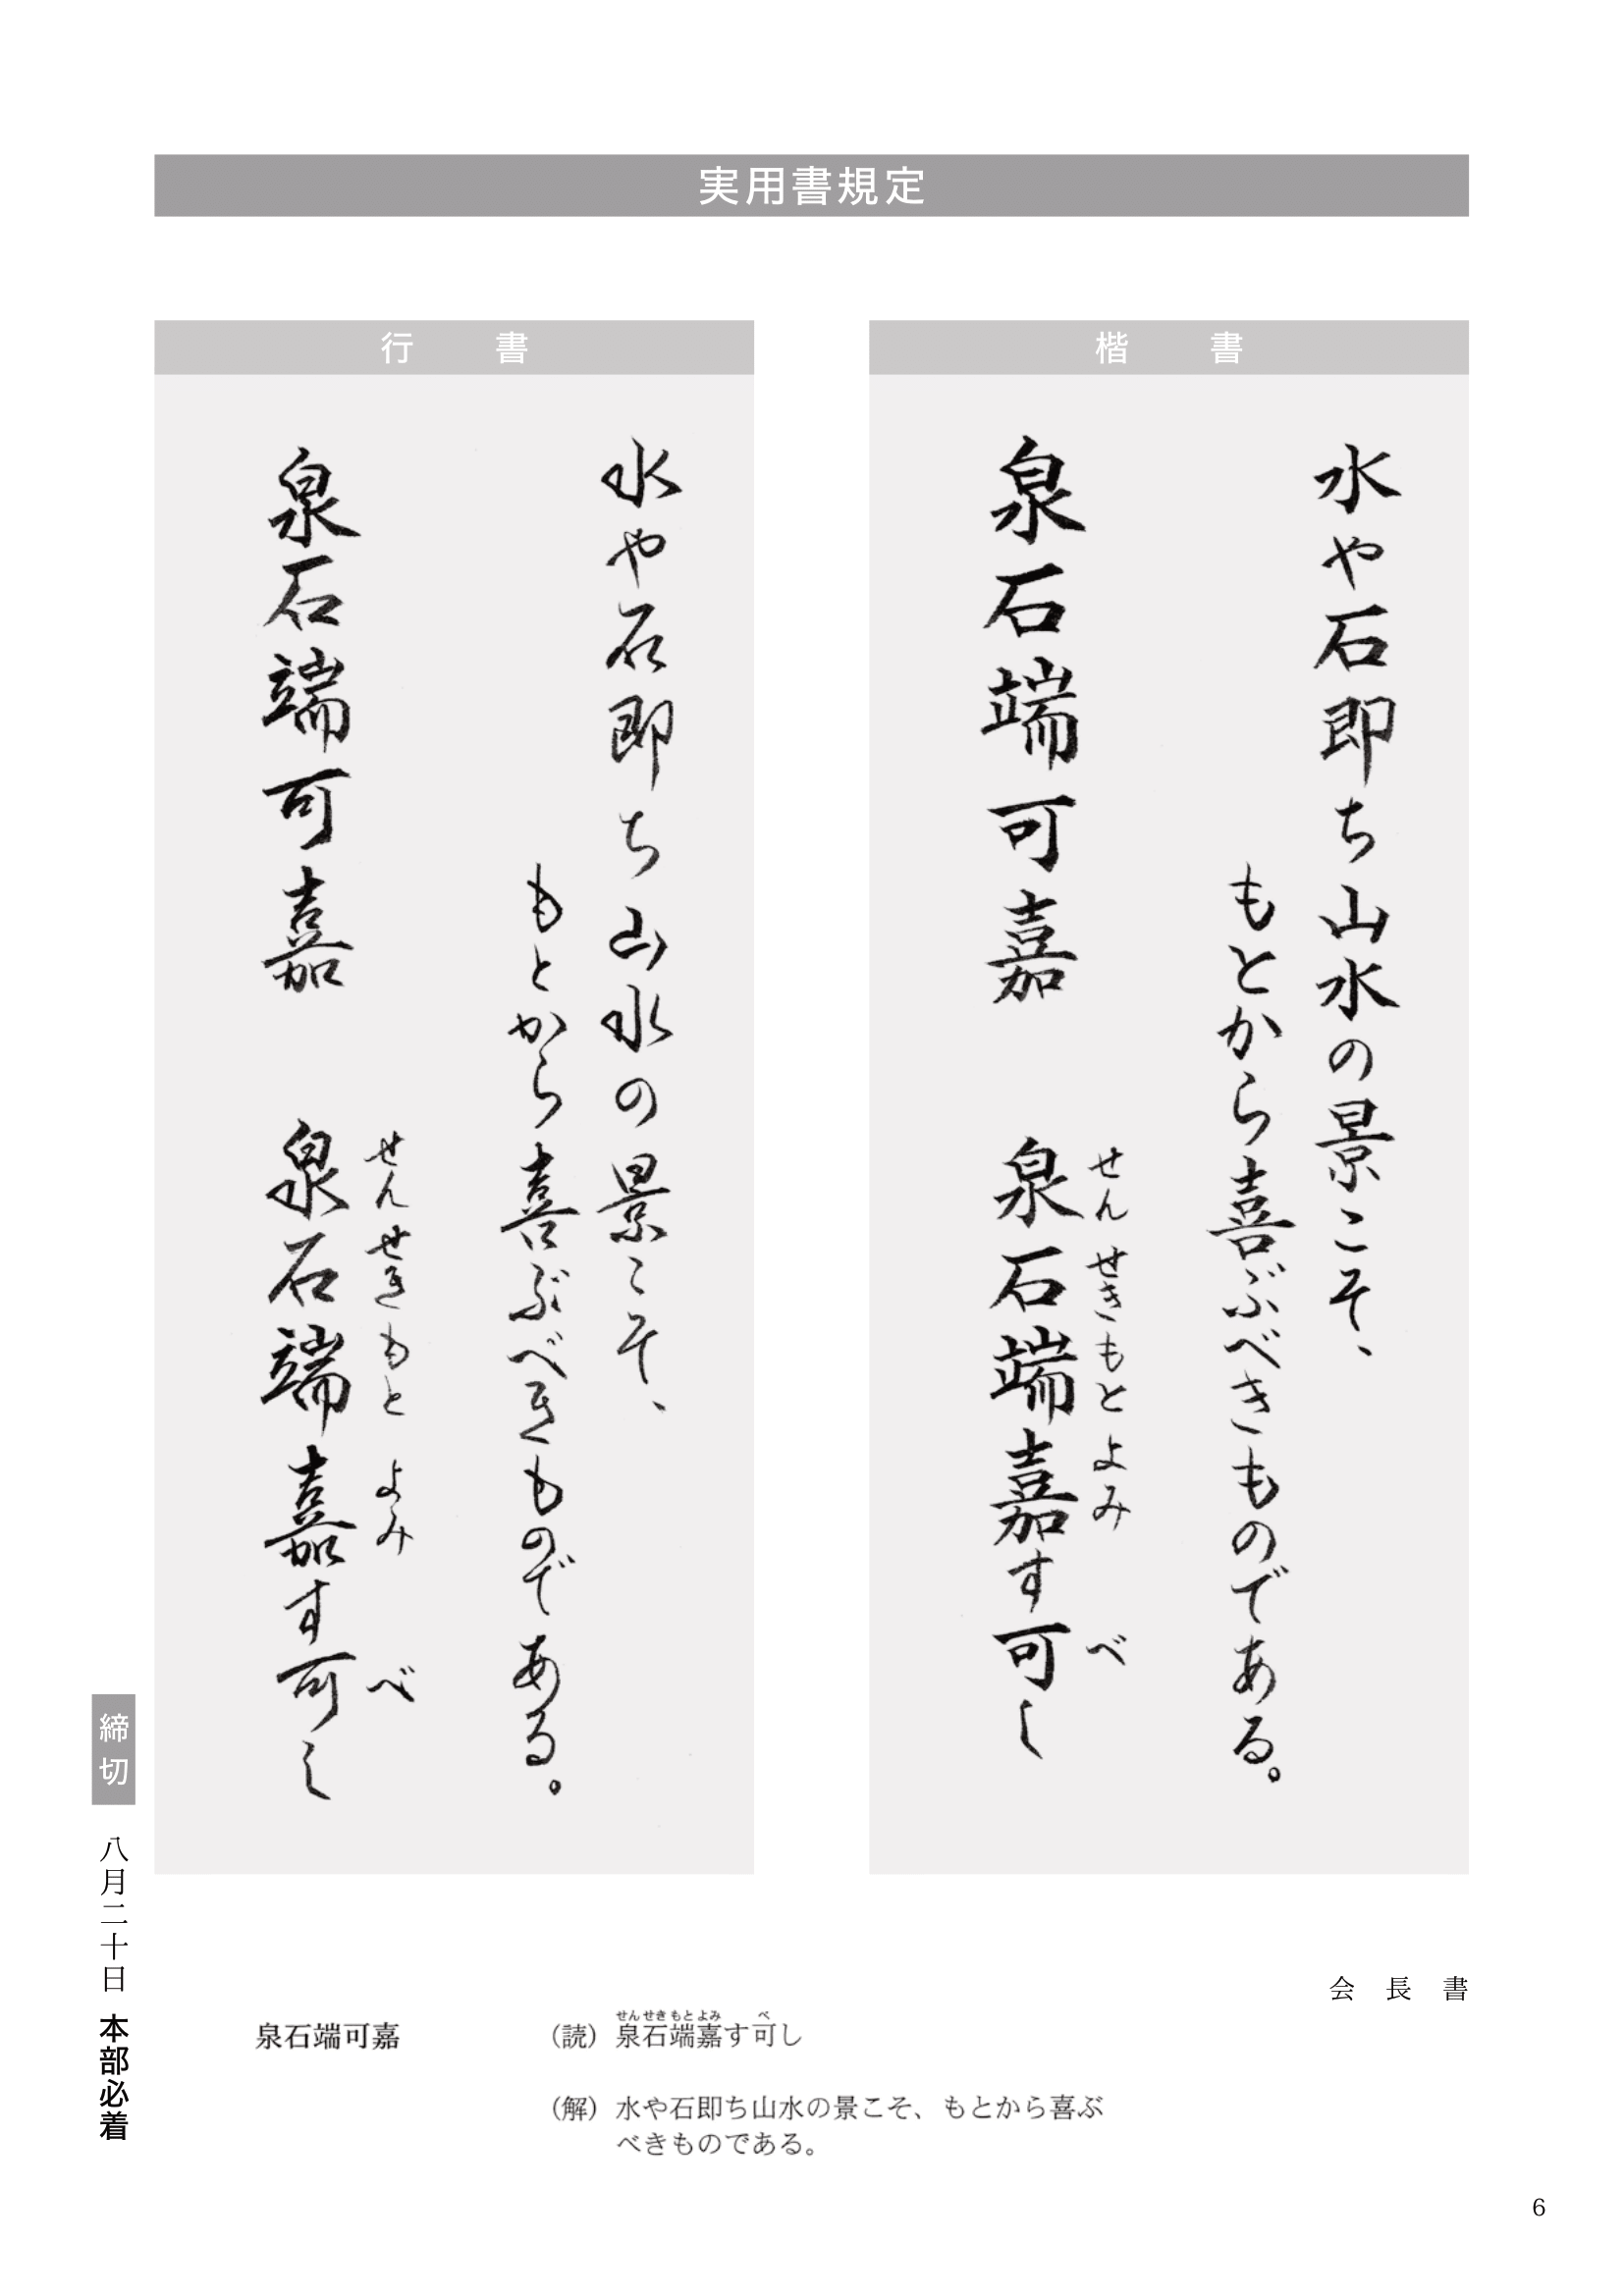 実用書規定
楷書
水や石即ち山水の景こそ、
もとから喜ぶべきものである。
せんせきもとよみべ
泉石端可嘉 泉石端嘉す可し
行書
水や石即ち山水の景こそ、
もとから喜ぶべきものである。
せんせきもとよみべ
泉石端可嘉 泉石端嘉す可し
会長書
泉石端可嘉
せんせきもとよみ べ
（読）泉石端嘉す可し
（解）水や石即ち山水の景こそ、もとから喜ぶ
べきものである。
締切 八月二十日 本部必着
6